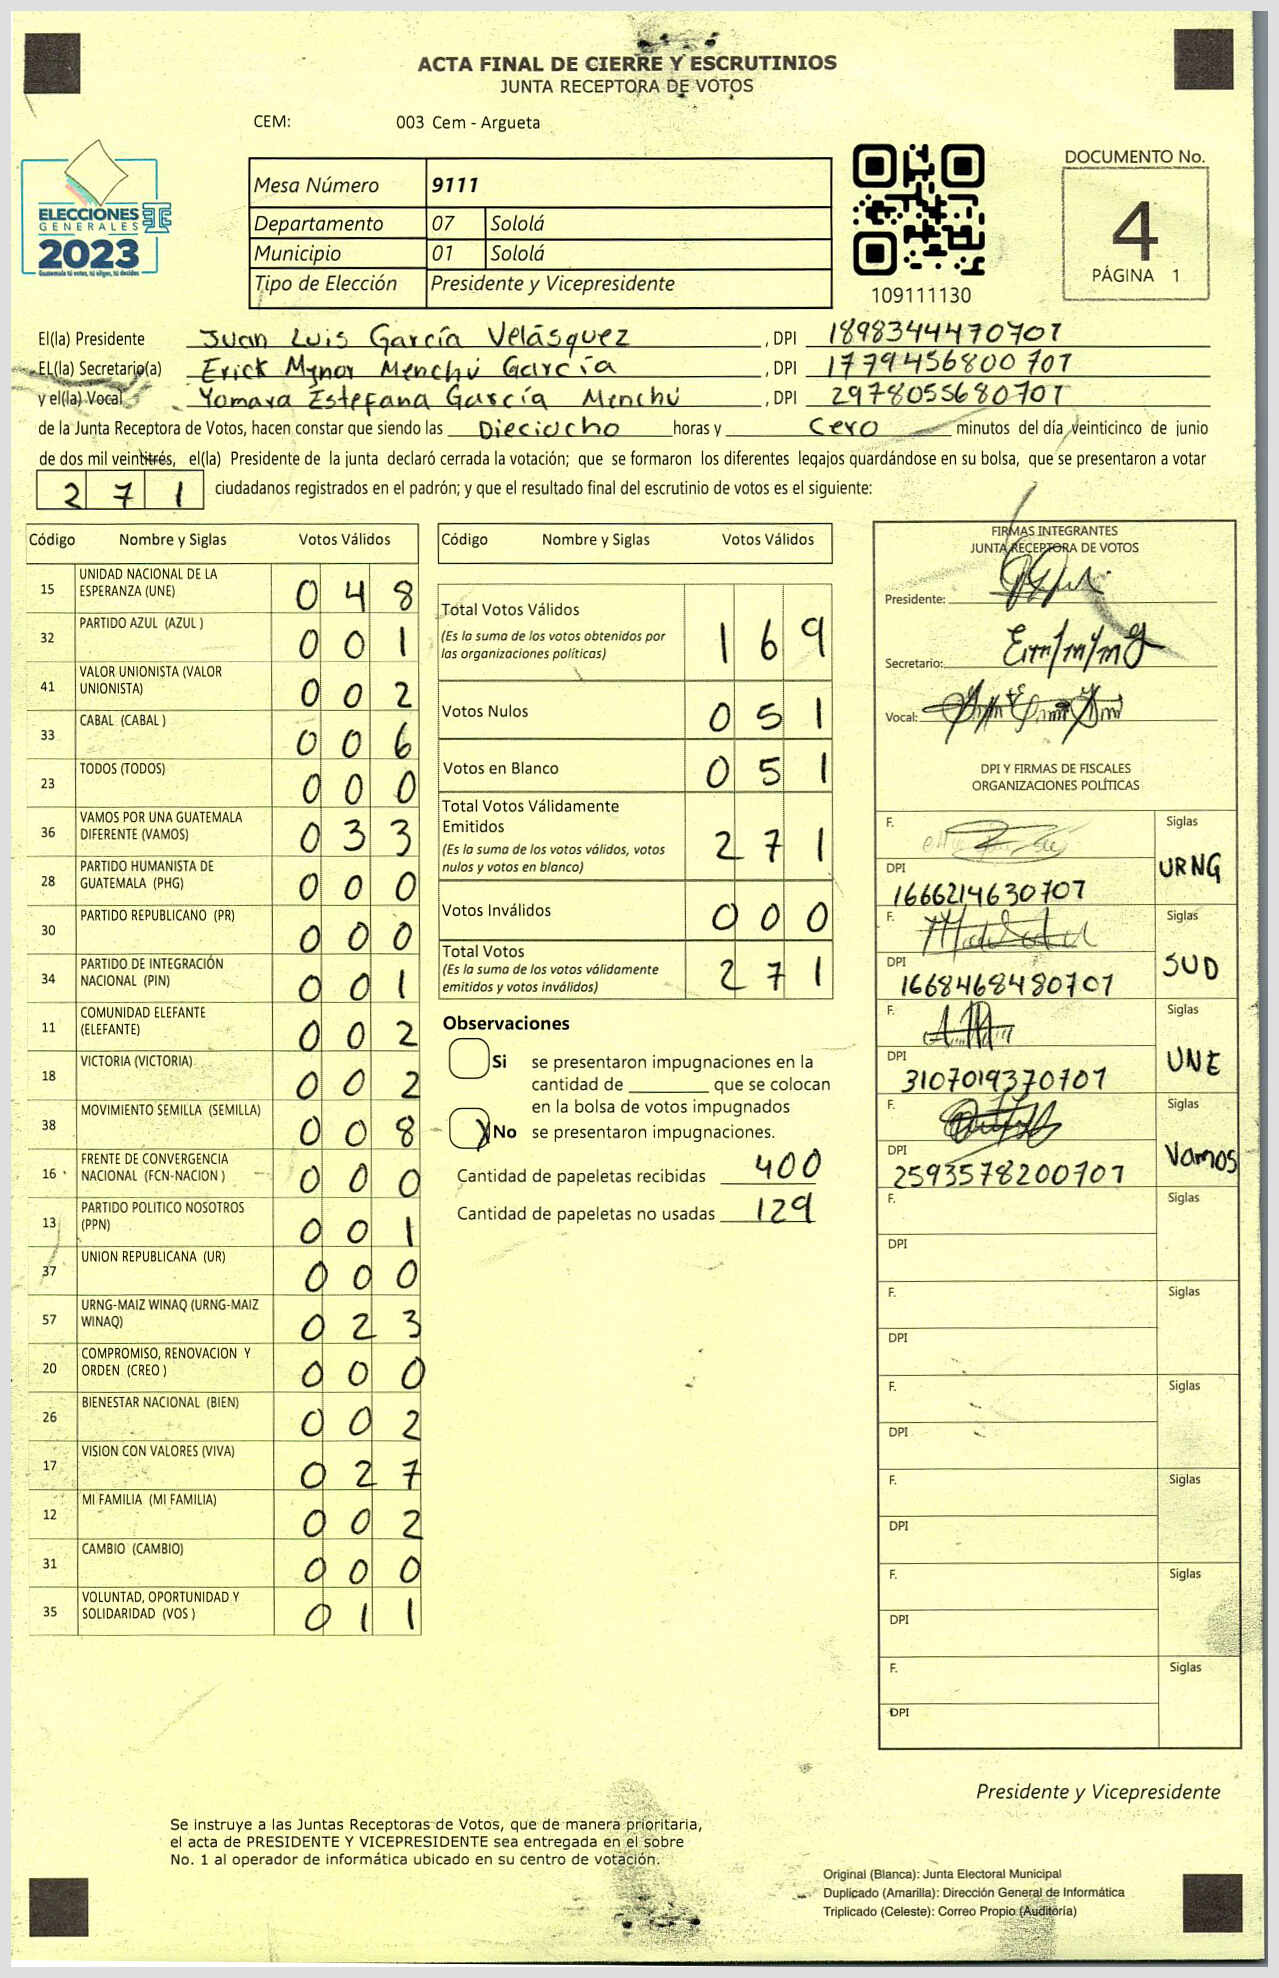 ACTA FINAL DE CIERRE Y ESCRUTINIOS
JUNTA RECEPTORA DE VOTOS
CEM: 003 Cem - Argueta
ELECCIONES
GENERALES
2023
Guatemala tú votas, tú eliges, tú decides
Mesa Número 9111
Departamento 07 Sololá
Municipio 01 Sololá
Tipo de Elección Presidente y Vicepresidente
109111130
DOCUMENTO No.
4
PÁGINA 1
El(la) Presidente Juan Luis García Velásquez, DPI 1898344470701
EL(la) Secretario(a) Erick Mynor Menchú García, DPI 1779456800701
y el(la) Vocal Yomara Estefana García Menchú, DPI 2978055680701
de la Junta Receptora de Votos, hacen constar que siendo las Dieciocho horas y Cero minutos del día veinticinco de junio
de dos mil veintitrés, el(la) Presidente de la junta declaró cerrada la votación; que se formaron los diferentes legajos quardándose en su bolsa, que se presentaron a votar
271 ciudadanos registrados en el padrón; y que el resultado final del escrutinio de votos es el siguiente:
Código Nombre y Siglas Votos Válidos
15 UNIDAD NACIONAL DE LA ESPERANZA (UNE) 048
32 PARTIDO AZUL (AZUL ) 001
41 VALOR UNIONISTA (VALOR UNIONISTA) 002
33 CABAL (CABAL ) 006
23 TODOS (TODOS) 000
36 VAMOS POR UNA GUATEMALA DIFERENTE (VAMOS) 033
28 PARTIDO HUMANISTA DE GUATEMALA (PHG) 000
30 PARTIDO REPUBLICANO (PR) 000
34 PARTIDO DE INTEGRACIÓN NACIONAL (PIN) 001
11 COMUNIDAD ELEFANTE (ELEFANTE) 002
18 VICTORIA (VICTORIA) 002
38 MOVIMIENTO SEMILLA (SEMILLA) 008
16 FRENTE DE CONVERGENCIA NACIONAL (FCN-NACION ) 000
13 PARTIDO POLITICO NOSOTROS (PPN) 001
37 UNION REPUBLICANA (UR) 000
57 URNG-MAIZ WINAQ (URNG-MAIZ WINAQ) 023
20 COMPROMISO, RENOVACION Y ORDEN (CREO ) 000
26 BIENESTAR NACIONAL (BIEN) 002
17 VISION CON VALORES (VIVA) 027
12 MI FAMILIA (MI FAMILIA) 002
31 CAMBIO (CAMBIO) 000
35 VOLUNTAD, OPORTUNIDAD Y SOLIDARIDAD (VOS ) 011
Código Nombre y Siglas Votos Válidos
Total Votos Válidos 169
(Es la suma de los votos obtenidos por
las organizaciones políticas)
Votos Nulos 051
Votos en Blanco 051
Total Votos Válidamente
Emitidos 271
(Es la suma de los votos válidos, votos
nulos y votos en blanco)
Votos Inválidos 000
Total Votos 271
(Es la suma de los votos válidamente
emitidos y votos inválidos)
Observaciones
Si se presentaron impugnaciones en la
cantidad de ________ que se colocan
en la bolsa de votos impugnados
No se presentaron impugnaciones.
Cantidad de papeletas recibidas 400
Cantidad de papeletas no usadas 129
FIRMAS INTEGRANTES
JUNTA RECEPTORA DE VOTOS
Presidente:
Secretario:
Vocal:
DPI Y FIRMAS DE FISCALES
ORGANIZACIONES POLÍTICAS
F. Siglas
URNG
DPI
1666214630701
F. Siglas
SUD
DPI
1668468480701
F. Siglas
UNE
DPI
3107019370701
F. Siglas
Vamos
DPI
2593578200701
F. Siglas
DPI
F. Siglas
DPI
F. Siglas
DPI
F. Siglas
DPI
F. Siglas
DPI
F. Siglas
DPI
Presidente y Vicepresidente
Se instruye a las Juntas Receptoras de Votos, que de manera prioritaria,
el acta de PRESIDENTE Y VICEPRESIDENTE sea entregada en el sobre
No. 1 al operador de informática ubicado en su centro de votación.
Original (Blanca): Junta Electoral Municipal
Duplicado (Amarilla): Dirección General de Informática
Triplicado (Celeste): Correo Propio (Auditoría)